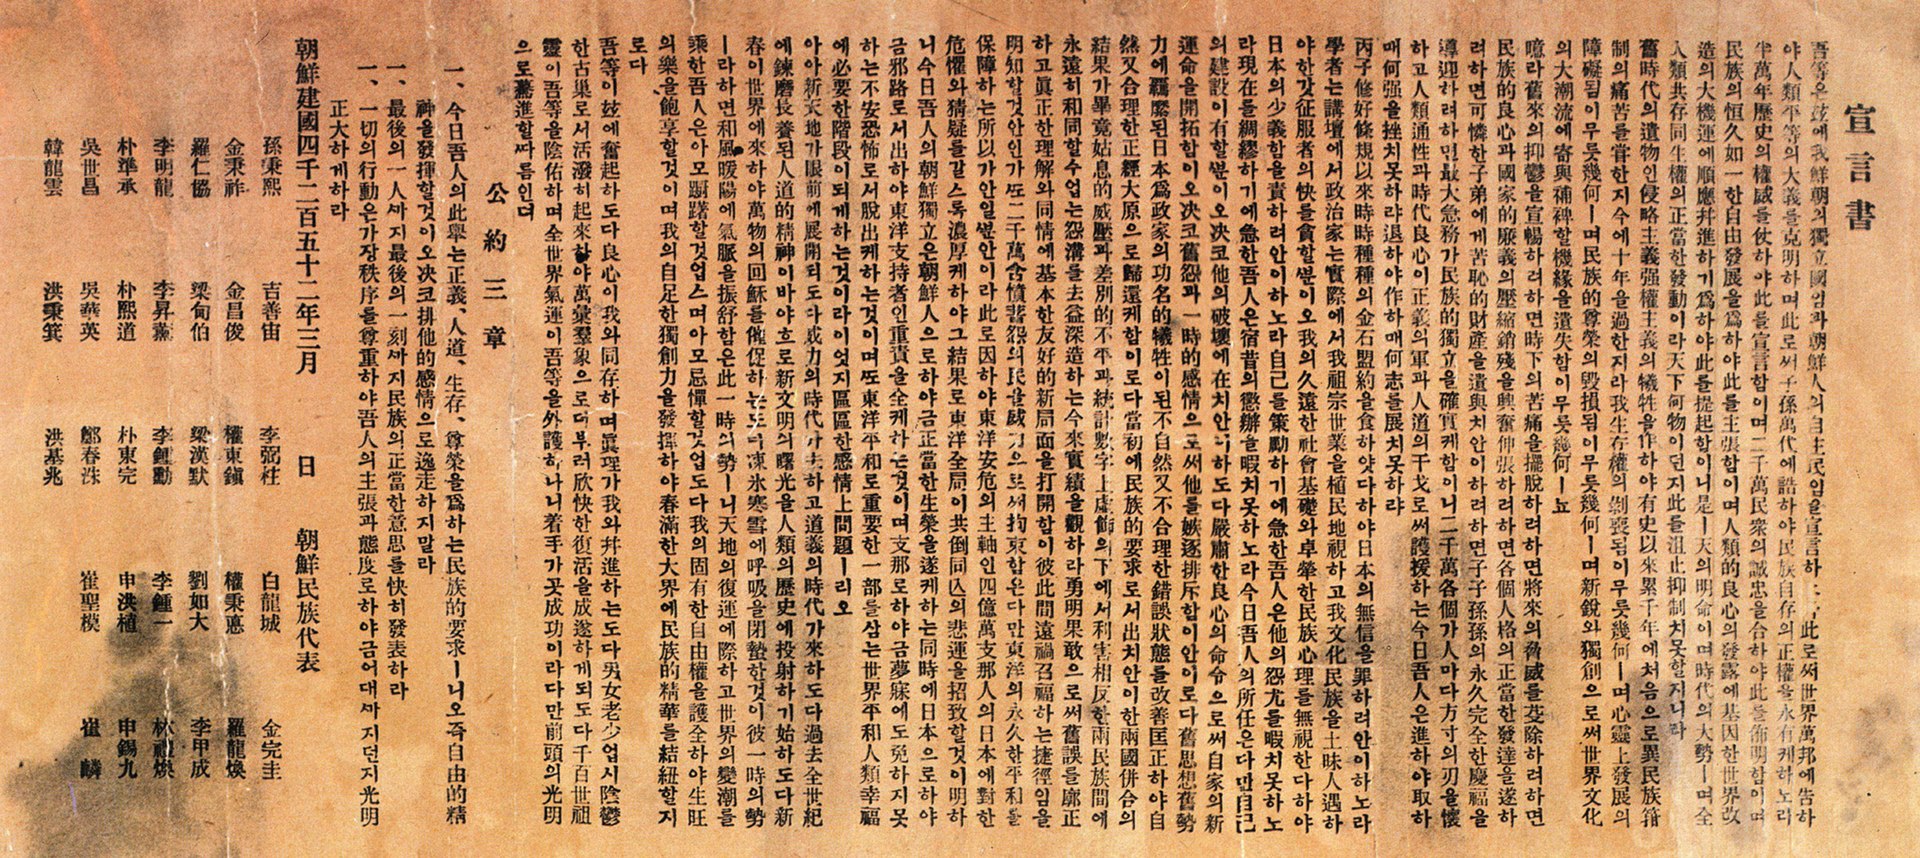 宣言書
吾等은玆에我鮮朝의獨立國임과朝鮮人의自主民임을宣言하노라此로써世界萬邦에告하
야人類平等의大義를克明하며此로써子孫萬代에誥하야民族自存의正權을永有케하노라
半萬年歷史의權威를仗하야此를宣言함이며二千萬民衆의誠忠을合하야此를佈明함이며
民族의恒久如一한自由發展을爲하야此를主張함이며人類的良心의發露에基因한世界改
造의大機運에順應幷進하기爲하야此를提起함이니是ㅣ天의明命이며時代의大勢ㅣ며全
人類共存同生權의正當한發動이라天下何物이던지此를沮止抑制치못할지니라
舊時代의遺物인侵略主義强權主義의犧牲을作하야有史以來累千年에처음으로異民族箝
制의痛苦를嘗한지今에十年을過한지라我生存權의剝喪됨이무릇幾何ㅣ며心靈上發展의
障礙됨이무릇幾何ㅣ며民族的尊榮의毁損됨이무릇幾何ㅣ며新銳와獨創으로써世界文化
의大潮流에寄與補裨할機緣을遺失함이무릇幾何ㅣ뇨
噫라舊來의抑鬱을宣暢하려하면時下의苦痛을擺脫하려하면將來의脅威를芟除하려하면
民族的良心과國家的廉義의壓縮銷殘을興奮伸張하려하면各個人格의正當한發達을遂하
려하면可憐한子弟에게苦恥的財產을遺與치안이하려하면子子孫孫의永久完全한慶福을
導迎하려하면最大急務가民族的獨立을確實케함이니二千萬各個가人마다方寸의刃을懷
하고人類通性과時代良心이正義의軍과人道의干戈로써護援하는今日吾人은進하야取하
매何强을挫치못하랴退하야作하매何志를展치못하랴
丙子修好條規以來時時種種의金石盟約을食하얏다하야日本의無信을罪하려안이하노라
學者는講壇에서政治家는實際에서我祖宗世業을植民地視하고我文化民族을土昧人遇하
야한갓征服者의快를貪할ᄲᅮᆫ이오我의久遠한社會基礎와卓犖한民族心理를無視한다하야
日本의少義함을責하려안이하노라自己를策勵하기에急한吾人은他의怨尤를暇치못하노
라現在를綢繆하기에急한吾人은宿昔의懲辦을暇치못하노라今日吾人의所任은다만自己
의建設이有할ᄲᅮᆫ이오決코他의破壞에在치안이하도다嚴肅한良心의命令으로써自家의新
運命을開拓함이오決코舊怨과一時的感情으로써他를嫉逐排斥함이안이로다舊思想舊勢
力에覊縻된日本爲政家의功名的犧牲이된不自然又不合理한錯誤狀態를改善匡正하야自
然又合理한正經大原으로歸還케함이로다當初에民族的要求로서出치안이한兩國倂合의
結果가畢竟姑息的威壓과差別的不平과統計數字上虛飾의下에서利害相反한兩民族間에
永遠히和同할수업는怨溝를去益深造하는今來實績을觀하라勇明果敢으로써舊誤를廓正
하고眞正한理解와同情에基本한友好的新局面을打開함이彼此間遠禍召福하는捷徑임을
明知할것안인가ᄯᅩ二千萬含憤蓄怨의民을威力으로써拘束함은다만東洋의永久한平和를
保障하는所以가안일ᄲᅮᆫ안이라此로因하야東洋安危의主軸인四億萬支那人의日本에對한
危懼와猜疑를갈스록濃厚케하야그結果로東洋全局이共倒同亡의悲運을招致할것이明하
니今日吾人의朝鮮獨立은朝鮮人으로하야금正當한生榮을遂케하는同時에日本으로하야
금邪路로서出하야東洋支持者인重責을全케하는것이며支那로하야금夢寐에도免하지못
하는不安恐怖로서脫出케하는것이며ᄯᅩ東洋平和로重要한一部를삼는世界平和人類幸福
에必要한階段이되게하는것이라이엇지區區한感情上問題ㅣ리오
아아新天地가眼前에展開되도다威力의時代가去하고道義의時代가來하도다過去全世紀
에鍊磨長養된人道的精神이바야흐로新文明의曙光을人類의歷史에投射하기始하도다新
春이世界에來하야萬物의回穌를催促하는도다凍氷寒雪에呼吸을閉蟄한것이彼一時의勢
ㅣ라하면和風暖陽에氣脈을振舒함은此一時의勢ㅣ니天地의復運에際하고世界의變潮를
乘한吾人은아모躕躇할것업스며아모忌憚할것업도다我의固有한自由權을護全하야生旺
의樂을飽享할것이며我의自足한獨創力을發揮하야春滿한大界에民族的精華를結紐할지
로다
吾等이玆에奮起하도다良心이我와同存하며眞理가我와幷進하는도다男女老少업시陰鬱
한古巢로서活潑히起來하야萬彙羣象으로더부러欣快한復活을成遂하게되도다千百世祖
靈이吾等을陰佑하며全世界氣運이吾等을外護하나니着手가곳成功이라다만前頭의光明
으로驀進할ᄯᅡ름인뎌
公約三章
一、今日吾人의此擧는正義、人道、生存、尊榮을爲하는民族的要求ㅣ니오즉自由的精
神을發揮할것이오決코排他的感情으로逸走하지말라
一、最後의一人ᄭᅡ지最後의一刻ᄭᅡ지民族의正當한意思를快히發表하라
一、一切의行動은가장秩序를尊重하야吾人의主張과態度로하야금어대ᄭᅡ지던지光明
正大하게하라
朝鮮建國四千二百五十二年三月 日 朝鮮民族代表
孫秉熙 吉善宙 李弼柱 白龍城 金完圭
金秉祚 金昌俊 權東鎭 權秉悳 羅龍煥
羅仁協 梁甸伯 梁漢默 劉如大 李甲成
李明龍 李昇薰 李鍾勳 李鍾一 林禮煥
朴準承 朴熙道 朴東完 申洪植 申錫九
吳世昌 吳華英 鄭春洙 崔聖模 崔麟
韓龍雲 洪秉箕 洪基兆